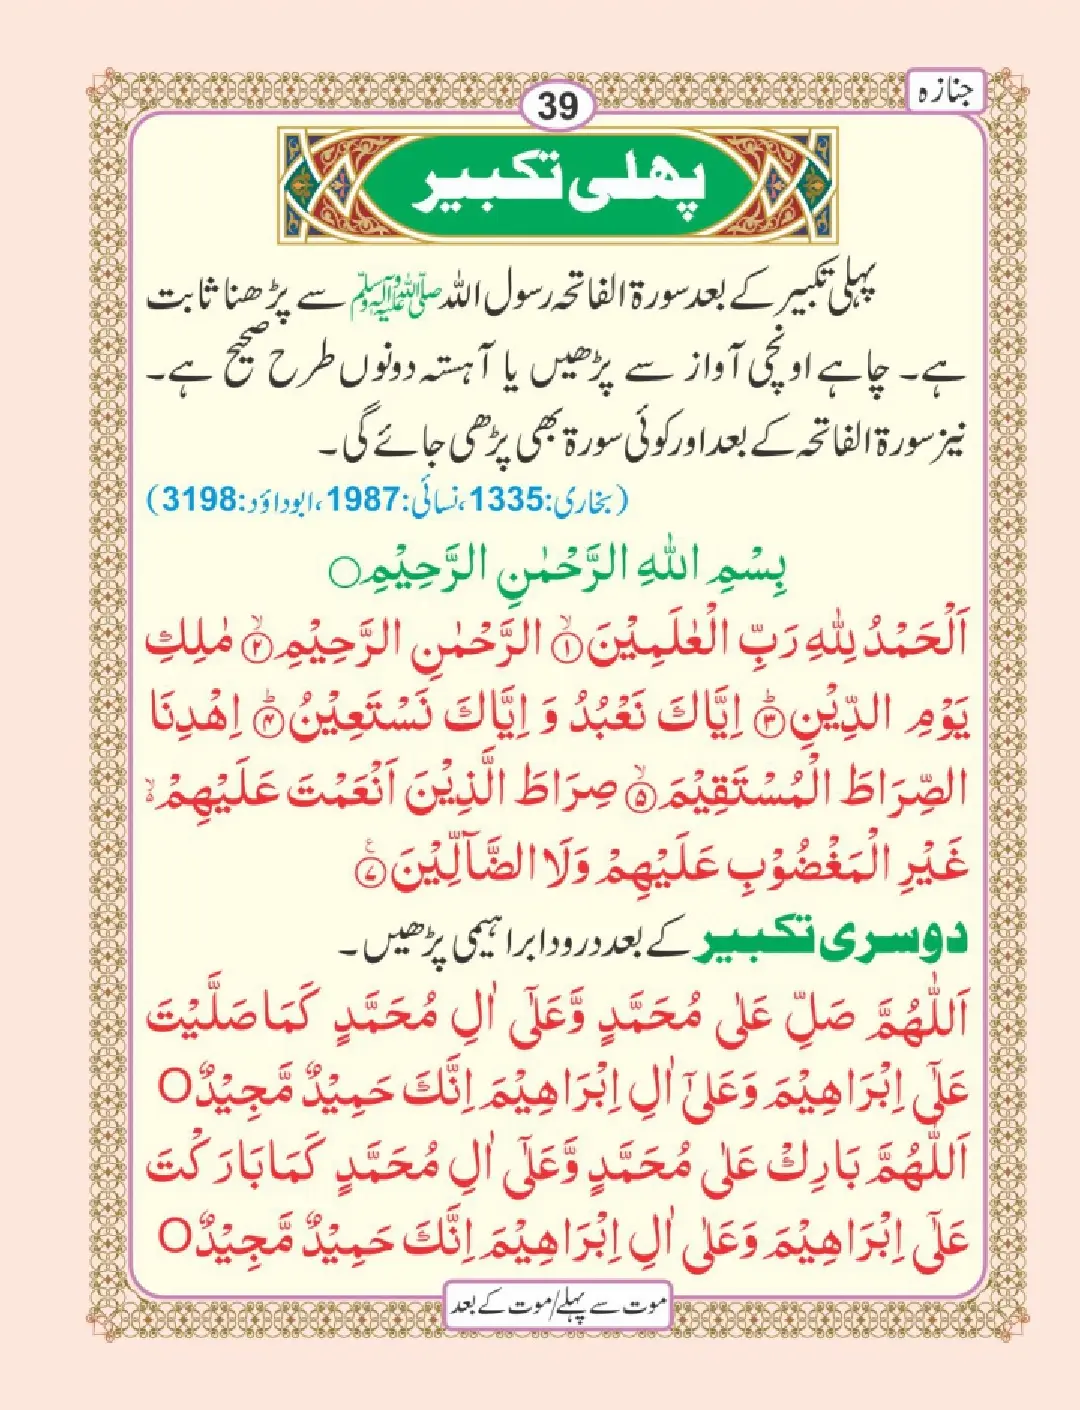 جنازہ
39
پھلی تکبیر
پہلی تکبیر کے بعد سورۃ الفاتحہ رسول اللہ ﷺ سے پڑھنا ثابت
ہے۔ چاہے اونچی آواز سے پڑھیں یا آہستہ دونوں طرح صحیح ہے۔
نیز سورۃ الفاتحہ کے بعد اور کوئی سورۃ بھی پڑھی جائے گی۔
(بخاری:1335، نسائی:1987، ابوداؤد:3198)
بِسْمِ اللّٰهِ الرَّحْمٰنِ الرَّحِیْمِ○
اَلْحَمْدُ لِلّٰهِ رَبِّ الْعٰلَمِیْنَۙ۝۱ الرَّحْمٰنِ الرَّحِیْمِۙ۝۲ مٰلِكِ
یَوْمِ الدِّیْنِؕ۝۳ اِیَّاكَ نَعْبُدُ وَ اِیَّاكَ نَسْتَعِیْنُؕ۝۴ اِهْدِنَا
الصِّرَاطَ الْمُسْتَقِیْمَۙ۝۵ صِرَاطَ الَّذِیْنَ اَنْعَمْتَ عَلَیْهِمْ ۙ۬ۦ
غَیْرِ الْمَغْضُوْبِ عَلَیْهِمْ وَلَا الضَّآلِّیْنَ۠۝۷
دوسری تکبیر کے بعد درود ابراہیمی پڑھیں۔
اَللّٰهُمَّ صَلِّ عَلٰی مُحَمَّدٍ وَّعَلٰٓی اٰلِ مُحَمَّدٍ كَمَا صَلَّیْتَ
عَلٰٓی اِبْرَاهِیْمَ وَعَلٰٓی اٰلِ اِبْرَاهِیْمَ اِنَّكَ حَمِیْدٌ مَّجِیْدٌ○
اَللّٰهُمَّ بَارِكْ عَلٰی مُحَمَّدٍ وَّعَلٰٓی اٰلِ مُحَمَّدٍ كَمَا بَارَكْتَ
عَلٰٓی اِبْرَاهِیْمَ وَعَلٰی اٰلِ اِبْرَاهِیْمَ اِنَّكَ حَمِیْدٌ مَّجِیْدٌ○
موت سے پہلے/موت کے بعد